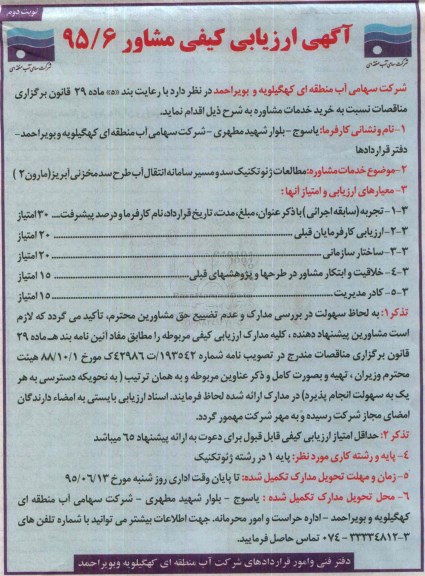 نوبت دوم
آگهی ارزیابی کیفی مشاور ۹۵/۶
شرکت سهامی آب منطقه ای
شرکت سهامی آب منطقه ای
شرکت سهامی آب منطقه ای کهگیلویه و بویراحمد در نظر دارد با رعایت بند «ه» ماده ۲۹ قانون برگزاری
مناقصات نسبت به خرید خدمات مشاوره به شرح ذیل اقدام نماید.
۱-نام و نشانی کارفرما: یاسوج -بلوار شهید مطهری -شرکت سهامی آب منطقه ای کهگیلویه و بویراحمد-
دفتر قراردادها
۲-موضوع خدمات مشاوره: مطالعات ژئوتکنیک سد و مسیر سامانه انتقال آب طرح سد مخزنی آبریز (مارون۲ )
۳- معیارهای ارزیابی و امتیاز آنها :
۳-۱- تجربه (سابقه اجرائی) با ذکر عنوان، مبلغ، مدت، تاریخ قرارداد، نام کارفرما و درصد پیشرفت.... ۳۰ امتیاز
۳-۲- ارزیابی کارفرمایان قبلی ........ ۲۰ امتیاز
۳-۳- ساختار سازمانی ........ ۲۰ امتیاز
۳-۴- خلاقیت و ابتکار مشاور در طرحها و پژوهشهای قبلی ........ ۱۵ امتیاز
۳-۵- کادر مدیریت ........ ۱۵ امتیاز
تذکر۱: به لحاظ سهولت در بررسی مدارک و عدم تضییع حق مشاورین محترم، تأکید می گردد که لازم
است مشاورین پیشنهاد دهنده ، کلیه مدارک ارزیابی کیفی مربوطه را مطابق مفاد آئین نامه بند هـ ماده ۲۹
قانون برگزاری مناقصات مندرج در تصویب نامه شماره ۱۹۳۵۴۲/ت ۴۲۹۸۶ک مورخ ۸۸/۱۰/۱ هیئت
محترم وزیران ، تهیه و بصورت کامل و ذکر عناوین مربوطه و به همان ترتیب ( به نحویکه دسترسی به هر
یک به سهولت انجام پذیرد) در مدارک ارائه شده لحاظ فرمایند. اسناد ارزیابی بایستی به امضاء دارندگان
امضای مجاز شرکت رسیده و به مهر شرکت ممهور گردد.
تذکر ۲: حداقل امتیاز ارزیابی کیفی قابل قبول برای دعوت به ارائه پیشنهاد ۶۵ میباشد
۴- پایه و رشته کاری مورد نظر: پایه ۱ در رشته ژئوتکنیک
۵- زمان و مهلت تحویل مدارک تکمیل شده: تا پایان وقت اداری روز شنبه مورخ ۹۵/۰۶/۱۳
۶- محل تحویل مدارک تکمیل شده : یاسوج - بلوار شهید مطهری - شرکت سهامی آب منطقه ای
کهگیلویه و بویراحمد - اداره حراست و امور محرمانه. جهت اطلاعات بیشتر می توانید با شماره تلفن های
۳-۳۳۳۳۴۸۱۲ - ۰۷۴ تماس حاصل فرمایید.
دفتر فنی وامور قراردادهای شرکت آب منطقه ای کهگیلویه وبویراحمد